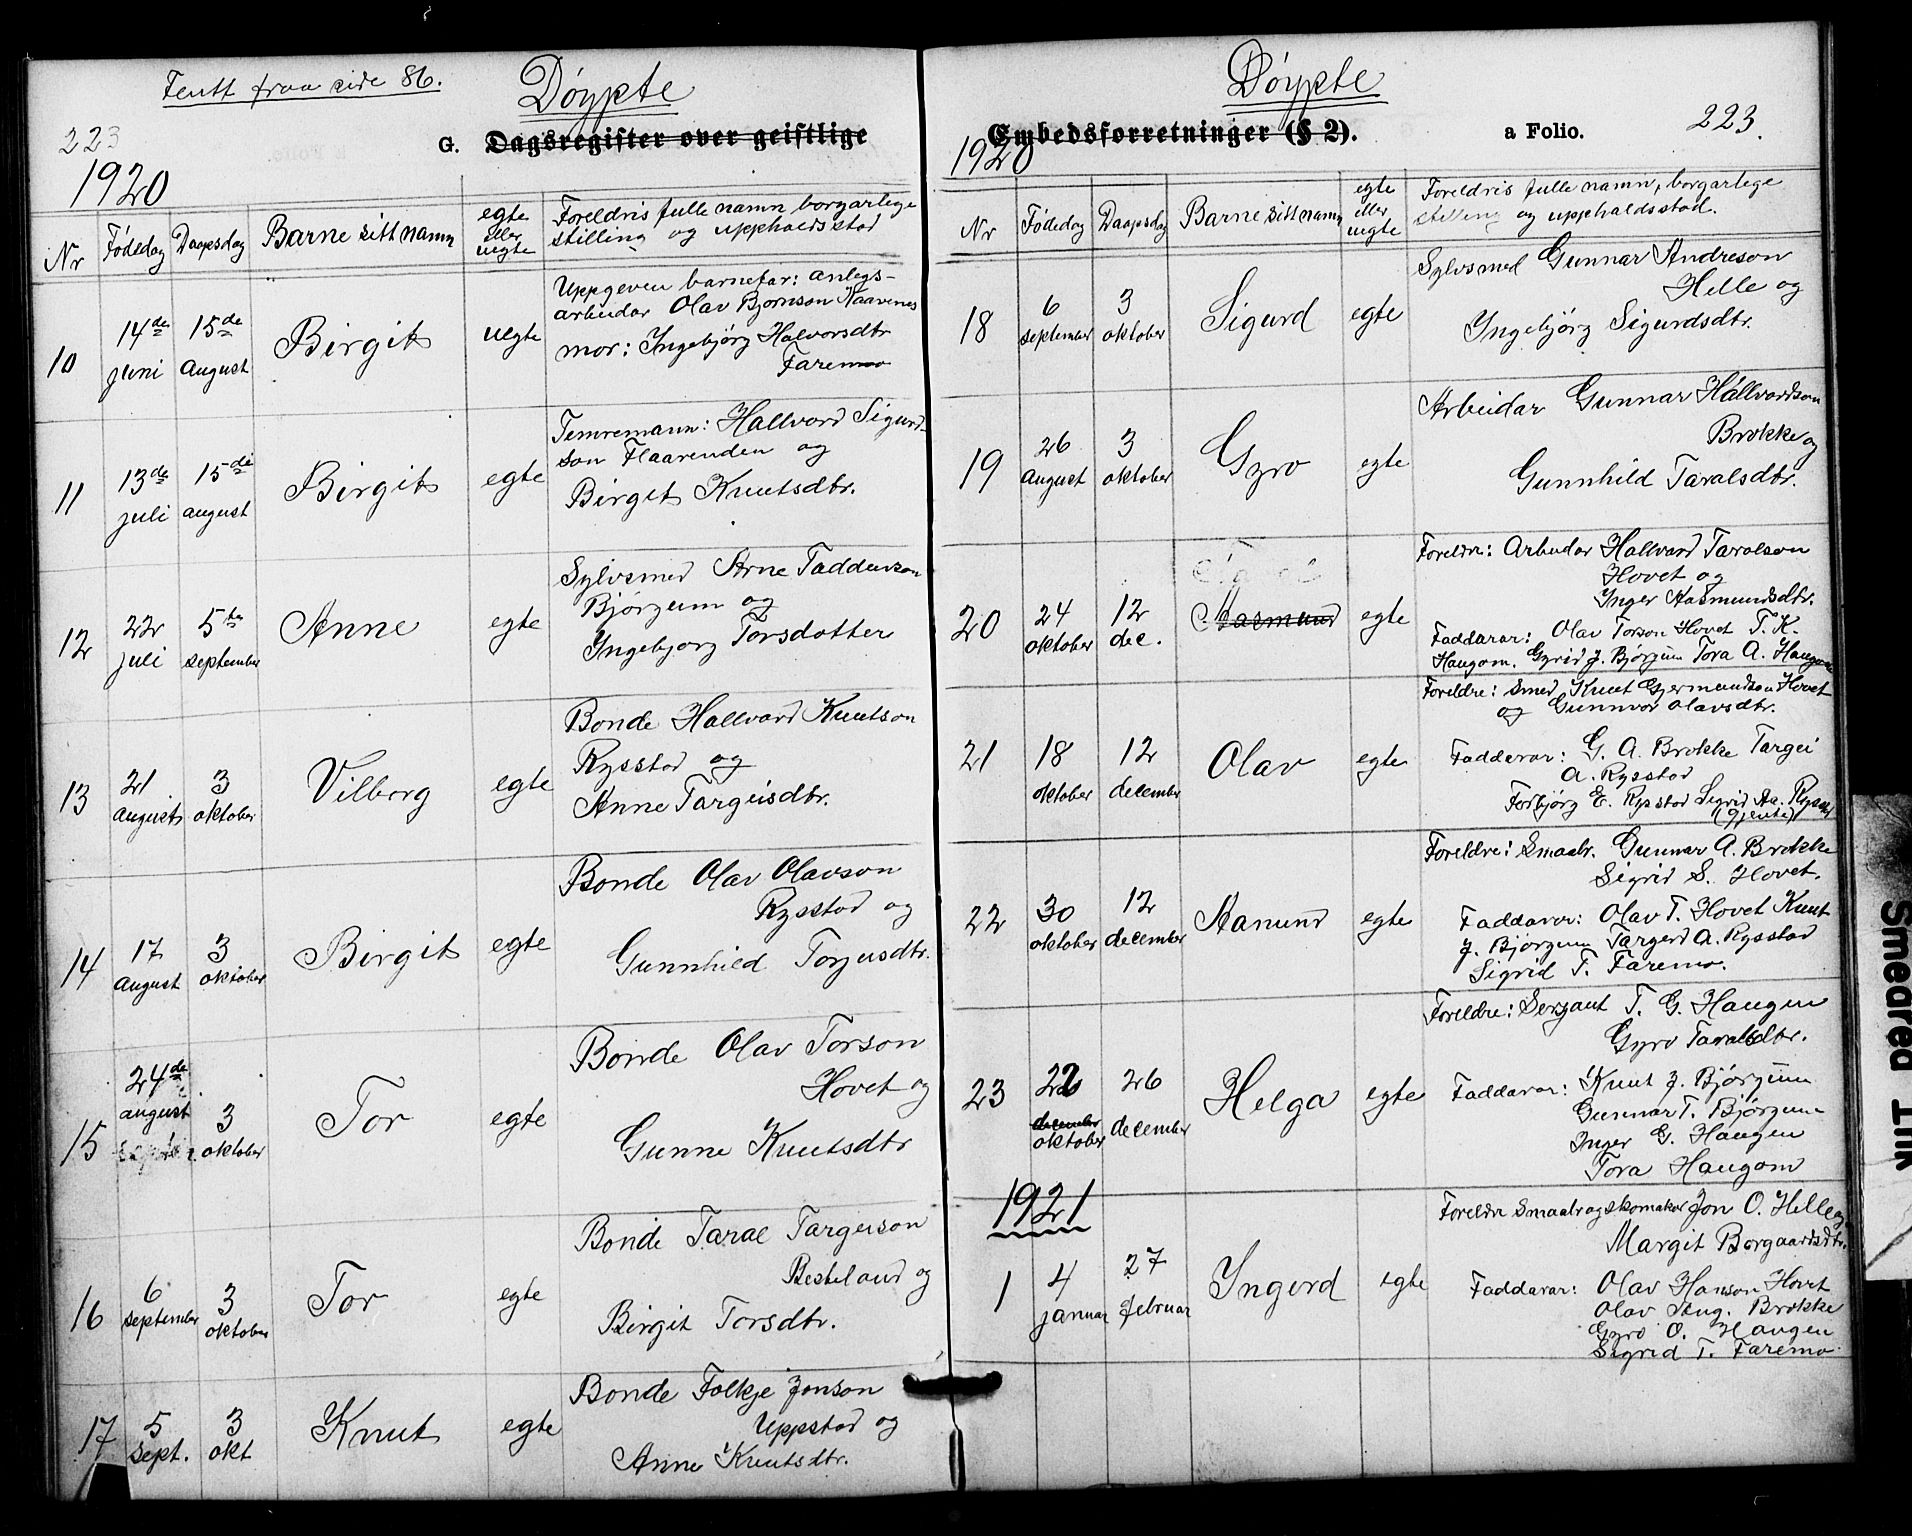 Fentt fraa side 86.
Døypte
223
G. Dagsregister over geistlige
1920
Nr Fødedag Daapsdag Barne sitt namn egte eller uegte Foreldris fulle namn borgarlege
stilling og uppholdsstad
10 14de juni 15de august Birgit uegte Uppgeven barnefar: anlegs-
arbeidar Olav Bjørnson Kaavenes
mor: Ingebjørg Halvorsdtr
Faremo
11 13de juli 15de august Birgit egte Temremann: Hallvard Sigurd-
son Flaarenden og
Birgit Knutsdtr.
12 22 juli 5te september Anne egte Sylvsmed Arne Taddeuson
Bjørgum og
Ingebjorg Torsdotter
13 21 august 3 oktober Vilborg egte Bonde Hallvard Knutson
Rysstad og
Anne Targeisdtr.
14 17 august 3 oktober Birgit egte Bonde Olav Olavson
Rysstad og
Gunnhild Torjusdtr.
15 24de august 3 oktober Tor egte Bonde Olav Torson
Hovet og
Gunne Knutsdtr
16 6 september 3 oktober Tor egte Bonde Taral Targeison
Besteland og
Birgit Torsdtr.
17 5 sept. 3 okt Knut egte Bonde Folkje Jonson
Uppstad og
Anne Knutsdtr.
Døypte
223.
Embedsforretninger (§ 2). a Folio.
1920
Nr Fødedag Daapsdag Barne sitt namn egte eller uegte Foreldris fulle namn, borgarlege
stilling og uppholdsstad.
18 6 september 3 oktober Sigurd egte Sylvsmed Gunnar Andreson
Helle og
Ingebjørg Sigurdsdtr.
19 26 august 3 oktober Gyro egte Arbeidar Gunnar Hallvardson
Brokke og
Gunnhild Taralsdtr.
20 24 oktober 12 dec. Aasmund egte Foreldre: Arbeidar Hallvard Taralson
Hovet og
Inger Aasmundsdtr.
Faddarar: Olav Torson Hovet T. K.
Haugom. Gyrid J. Bjørgum Tora A. Haugom
21 18 oktober 12 december Olav egte Foreldre: Smed Knut Gjermundson Hovet
og Gunnvor Olavsdtr.
Faddarar: G. A. Brokke Targei
A. Rysstad
Torbjørg E. Rysstad Sigrid Aa. Rysstad
(gjente)
22 30 oktober 12 december Aanund egte Foreldre: Smaabr. Gunnar A. Brokke
Sigrid S. Hovet.
Faddarar: Olav T. Hovet Knut
J. Bjørgum Targerd A. Rysstad
Sigrid T. Faremo.
23 22 december oktober 26 december Helga egte Foreldre: Serjant T. G. Haugen
Gyro Taralsdtr.
Faddarar: Knut J. Bjørgum
Gunnar T. Bjørgum
Inger G. Haugen
Tora Haugom
1921
1 4 januar 27 februar Ingerd egte Foreldre Smaabr og skomakar Jon O. Helle og
Margit Borgaardsdtr.
Faddarar: Olav Hanson Hovet
Olav Brokke
Gyro O. Haugen
Sigrid T. Faremo
Smeared Ink